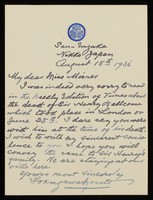 San-Sugaka
Nikko, Japan
August 18th 1936
My dear Miss Moines
I was indeed very sorry to read
in the Weekly Edition of Times about
the death of Sir Henry Wellcome
which took place in London on
June 25th. I dare say you were
with him at the time of his death.
I wish to write my sincere condo-
lence to you. I hope you will
convey the same to Sir Henry's
family. We are staying at our
Yours most sincerely